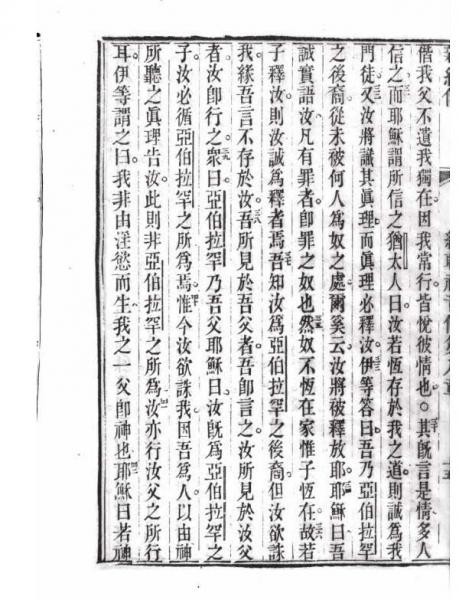 偕我父不遺我獨在因我常行皆悅彼情也。○其旣言是情多人
信之而耶穌謂所信之猶太人曰汝若恆存於我之道則誠爲我
門徒又汝將識其眞理而眞理必釋汝伊等答曰吾乃亞伯拉罕
之後裔從未被何人爲奴之處爾奚云汝將被釋放耶耶穌曰吾
誠實語汝凡有罪者卽罪之奴也然奴不恆在家惟子恆在故若
子釋汝則汝誠爲釋者焉吾知汝爲亞伯拉罕之後裔但汝欲誅
我緣吾言不存於汝吾所見於吾父者吾卽言之汝所見於汝父
者汝卽行之衆曰亞伯拉罕乃吾父耶穌曰汝旣爲亞伯拉罕之
子汝必循亞伯拉罕之所爲焉惟今汝欲誅我因吾爲人以由神
所聽之眞理告汝此則非亞伯拉罕之所爲汝亦行汝父之所行
耳伊等謂之曰我非由淫慾而生我之一父卽神也耶穌曰若神